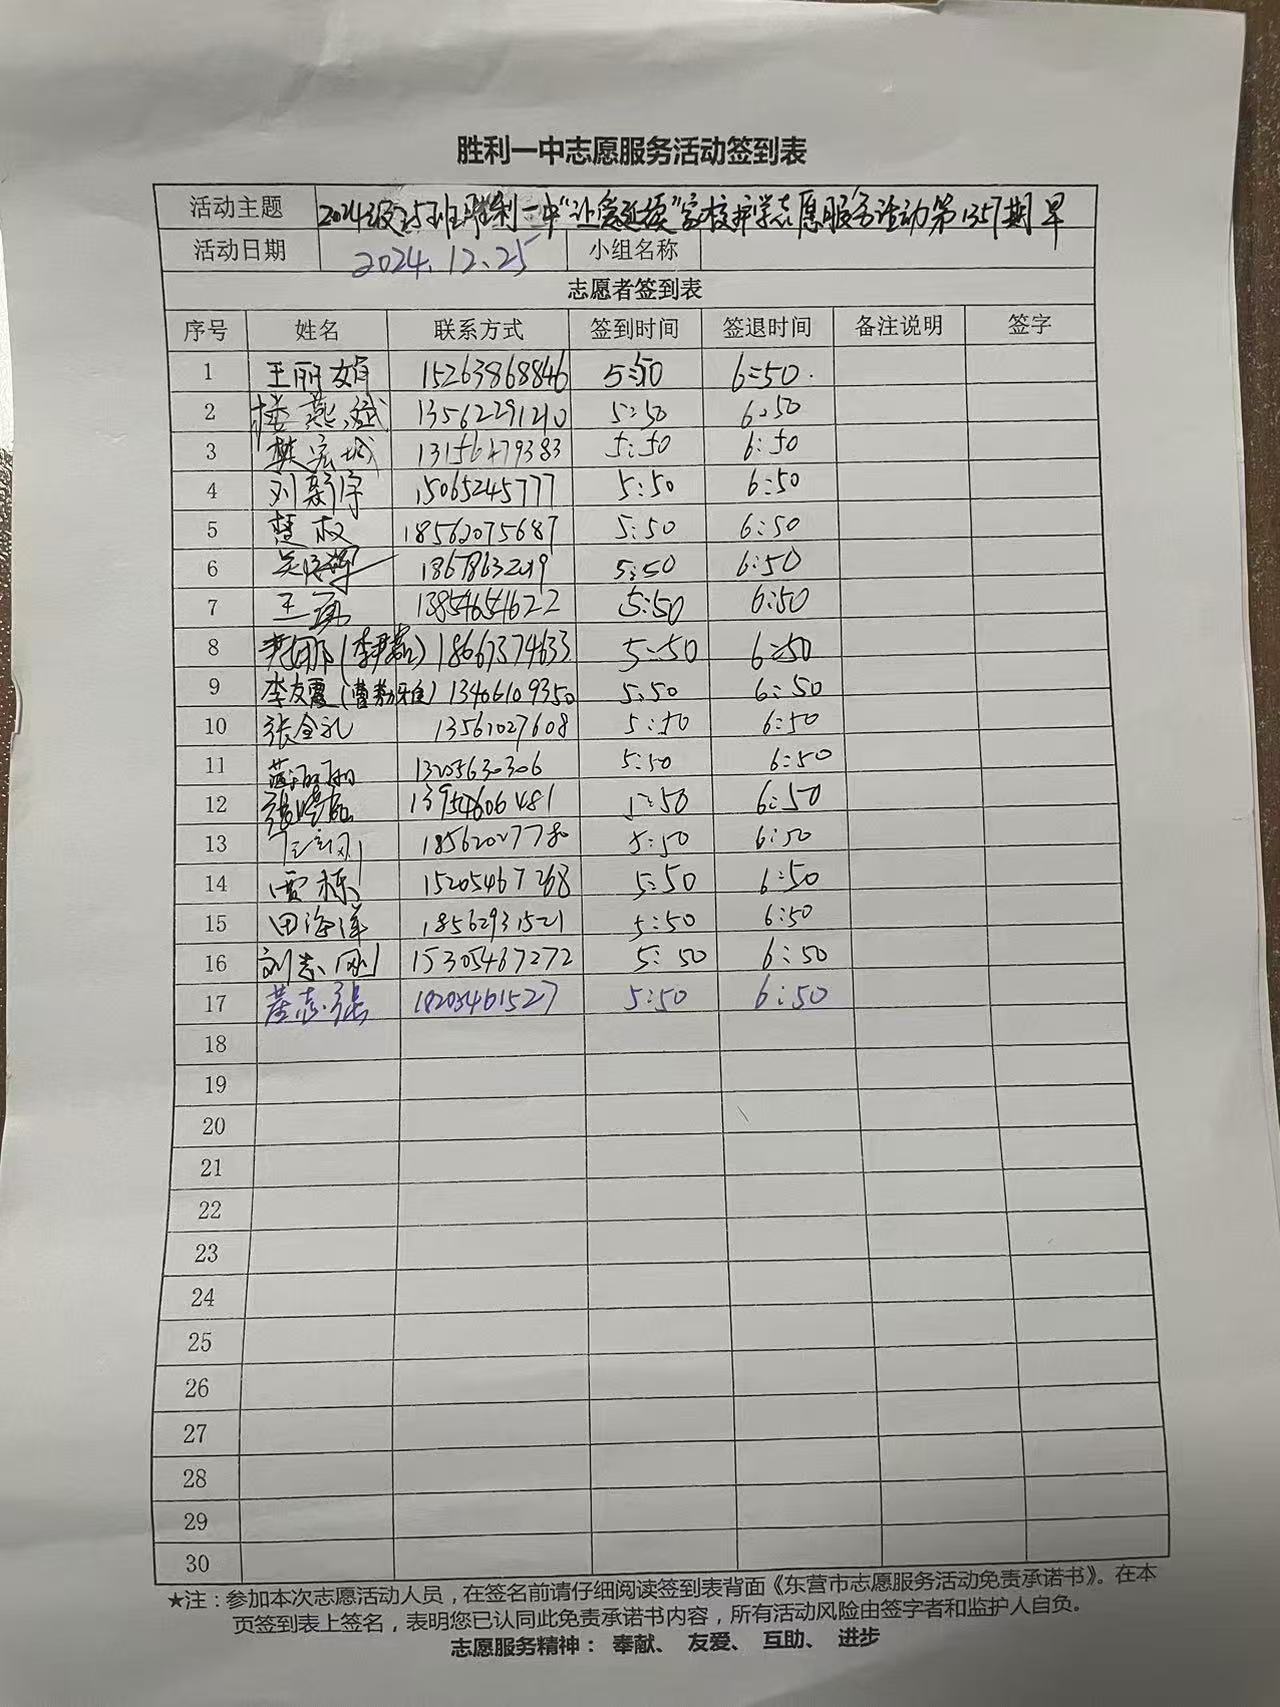 胜利一中志愿服务活动签到表
活动主题 2024级25班胜利一中"让爱延续"家校护学志愿服务活动第1357期早
活动日期 2024.12.25 小组名称
志愿者签到表
序号 姓名 联系方式 签到时间 签退时间 备注说明 签字
1 王丽娟 15263868846 5:50 6:50.
2 燕斌 13562291210 5:50 6:50
3 樊宏城 13156479383 5:50 6:50
4 刘新 15065245777 5:50 6:50
5 权 18562075687 5:50 6:50
6 5:50 6:50
7 王勇 13854654622 5:50 6:50
8 尹娜(李尹) 18667374633 5:50 6:50
9 李友霞(曹雅) 13406109350 5:50 6:50
10 张全礼 13561027608 5:50 6:50
11 13205630306 5:50 6:50
12 张 13954606481 5:50 6:50
13 刚 18562027780 5:50 6:50
14 贾栋 15205467268 5:50 6:50
15 田海洋 18562931521 5:50 6:50
16 刘志刚 15305467272 5:50 6:50
17 志强 5:50 6:50
18
19
20
21
22
23
24
25
26
27
28
29
30
★注：参加本次志愿活动人员，在签名前请仔细阅读签到表背面《东营市志愿服务活动免责承诺书》。在本
页签到表上签名，表明您已认同此免责承诺书内容，所有活动风险由签字者和监护人自负。
志愿服务精神： 奉献、 友爱、 互助、 进步